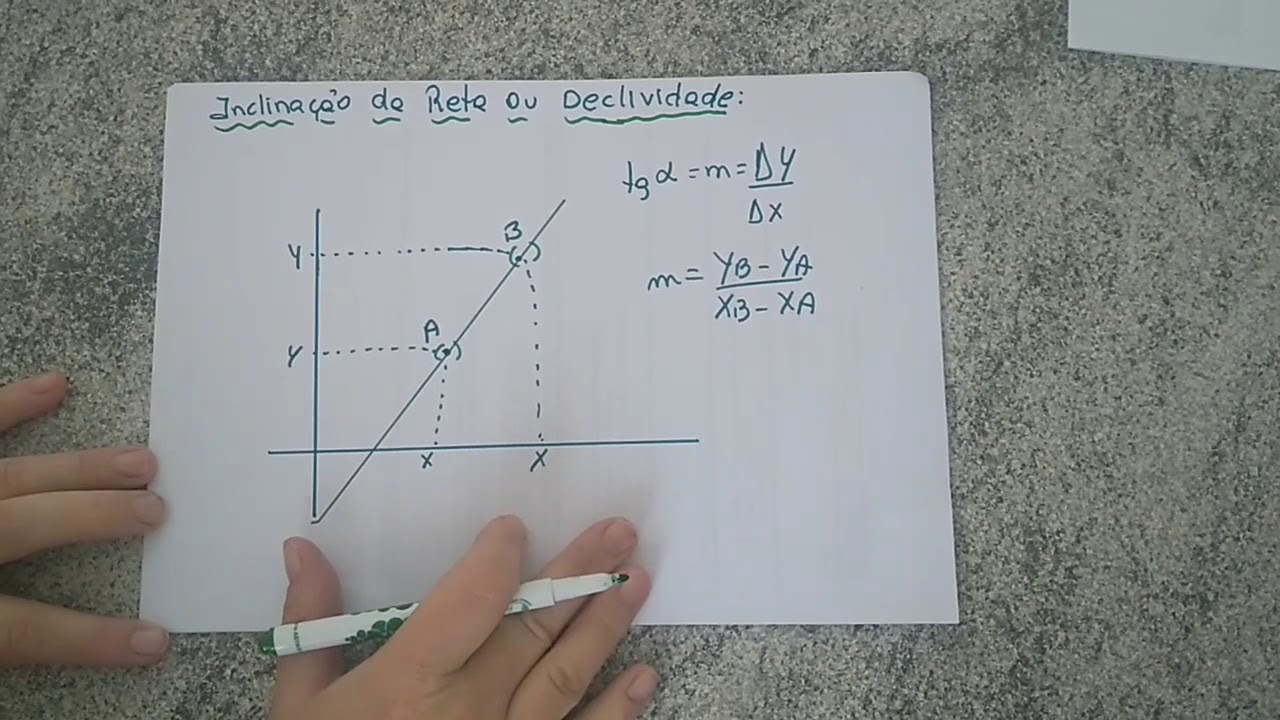 Inclinação da Reta ou Declividade:
tg α = m = ΔY
ΔX
m = YB - YA
XB - XA
B
Y
A
Y
X X